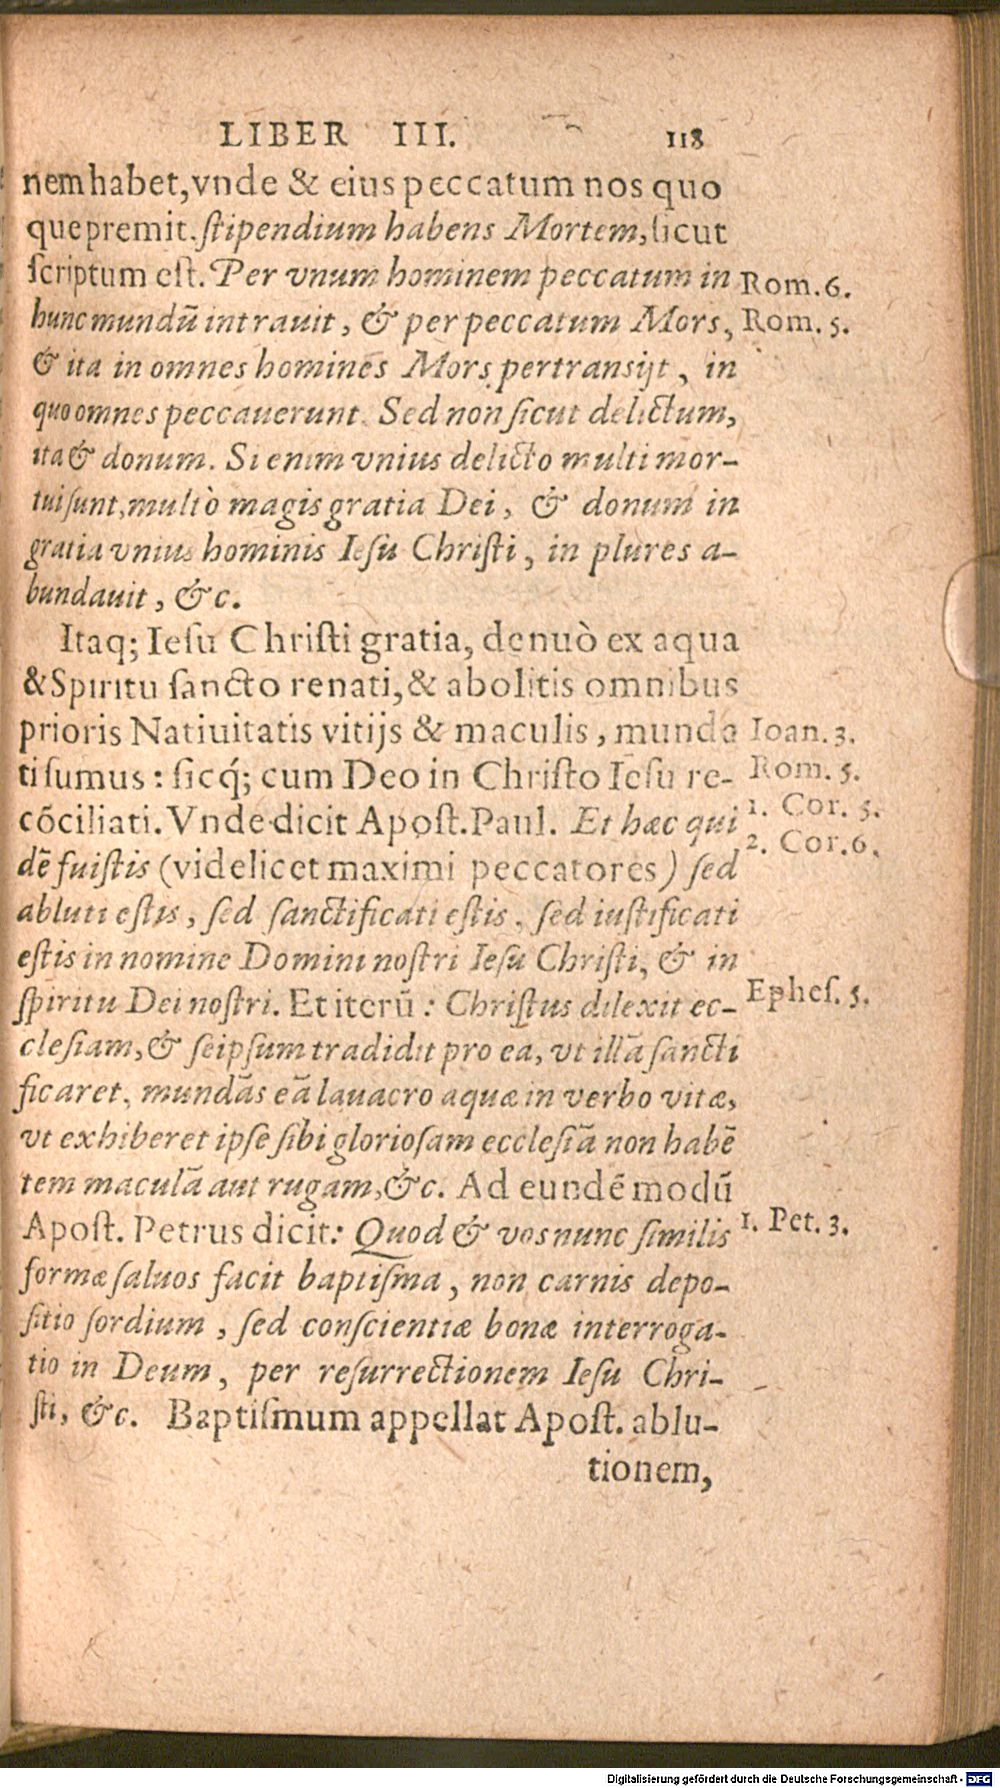 LIBER III. 118
nem habet, vnde & eius peccatum nos quo
que premit. ſtipendium habens Mortem, ſicut
ſcriptum eſt. Per vnum hominem peccatum in
Rom. 6.
hunc mundũ intrauit, & per peccatum Mors,
Rom. 5.
& ita in omnes homines Mors pertransijt, in
quo omnes peccauerunt. Sed non ſicut delictum,
ita & donum. Si enim vnius delicto multi mor-
tui ſunt, multò magis gratia Dei, & donum in
gratia vnius hominis Ieſu Chriſti, in plures a-
bundauit, &c.
Itaq; Ieſu Chriſti gratia, denuò ex aqua
& Spiritu ſancto renati, & abolitis omnibus
prioris Natiuitatis vitijs & maculis, munda
Ioan. 3.
ti ſumus: ſicq́; cum Deo in Chriſto Ieſu re-
Rom. 5.
cõciliati. Vnde dicit Apoſt. Paul. Et hæc qui
1. Cor. 5.
dẽ fuiſtis (videlicet maximi peccatores) ſed
2. Cor. 6.
abluti eſtis, ſed ſanctificati eſtis, ſed iuſtificati
eſtis in nomine Domini noſtri Ieſu Chriſti, & in
ſpiritu Dei noſtri. Et iterũ: Chriſtus dilexit ec-
Epheſ. 5.
cleſiam, & ſeipſum tradidit pro ea, vt illã ſancti
ficaret, mundãs eã lauacro aquæ in verbo vitæ,
vt exhiberet ipſe ſibi glorioſam eccleſiã non habẽ
tem maculã aut rugam, &c. Ad eundẽ modũ
Apoſt. Petrus dicit: Quod & vos nunc ſimilis
1. Pet. 3.
formæ ſaluos facit baptiſma, non carnis depo-
ſitio ſordium, ſed conſcientiæ bonæ interroga-
tio in Deum, per reſurrectionem Ieſu Chri-
ſti, &c. Baptiſmum appellat Apoſt. ablu-
tionem,
Digitalisierung gefördert durch die Deutsche Forschungsgemeinschaft - DFG